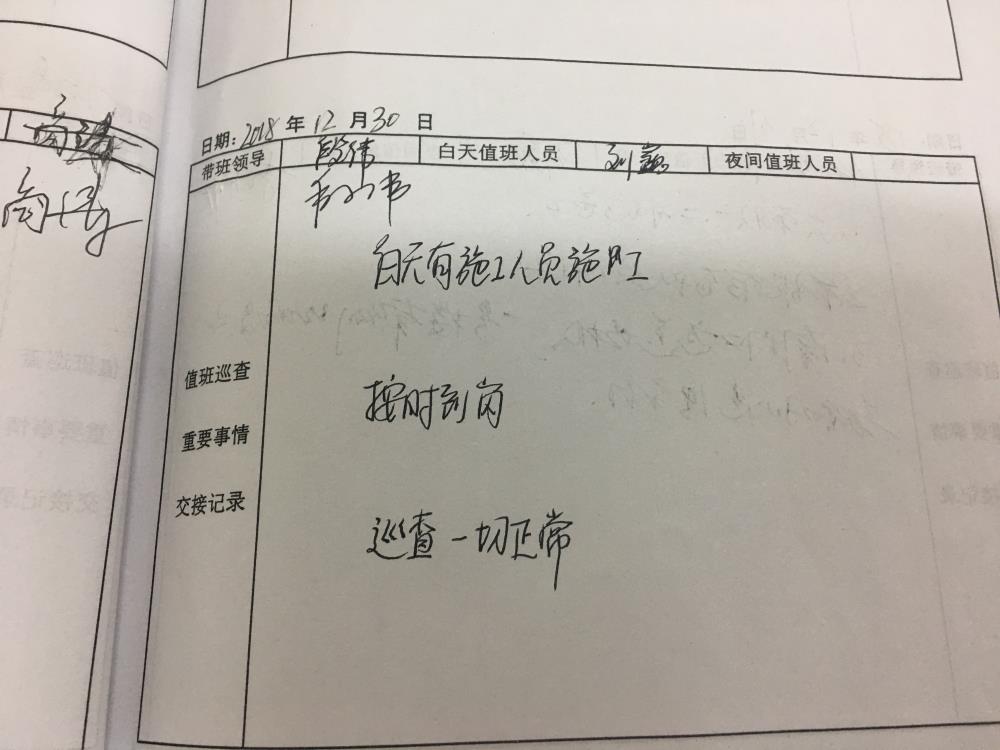 日期:2018年12月30日
带班领导 段伟 白天值班人员 刘鑫 夜间值班人员
白天有施工人员施工
值班巡查
按时到岗
重要事情
交接记录
巡查一切正常